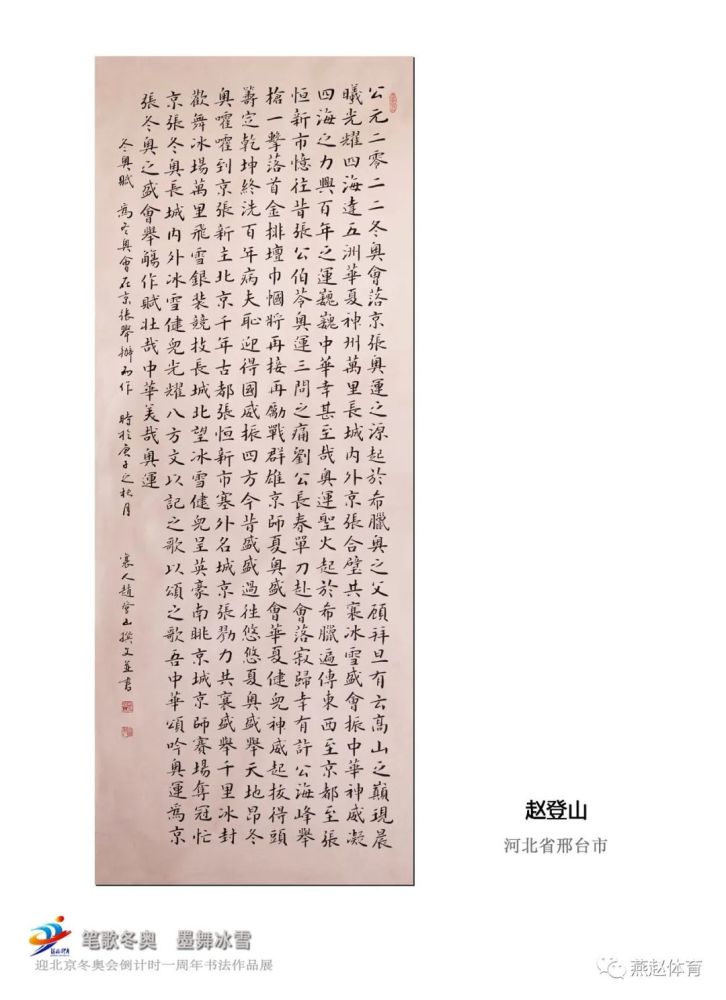 公元二零二二冬奥會落京張奥運之源起於希臘奥之父顧拜旦有云高山之巔現晨
曦光耀四海達五洲華夏神州萬里長城内外京張合璧共襄冰雪盛會振中華神威凝
四海之力興百年之運巍巍中華幸甚至哉奥運聖火起於希臘遍傳東西至京都至張
恒新市憶往昔張公伯苓奥運三問之痛劉公長春單刀赴會落寂歸幸有許公海峰舉
槍一擊落首金排壇巾幗將再接再勵戰群雄京師夏奥盛會華夏健兒神威起拔得頭
籌定乾坤終洗百年病夫恥迎得國威振四方今昔盛盛過往悠悠夏奥盛舉天地昂冬
奥嚯嚯到京張新主北京千年古都張恒新市塞外名城京張勠力共襄盛舉千里冰封
歡舞冰場萬里飛雪銀裝競技長城北望冰雪健兒呈英豪南眺京城京師賽場奪冠忙
京張冬奥長城内外冰雪健兒光耀八方文以記之歌以頌之歌吾中華頌吟奥運為京
張冬奥之盛會舉觴作賦壯哉中華美哉奥運
冬奥賦 為冬奥會在京張舉辦而作 時於庚子之秋月 襄人趙登山撰文並書
赵登山
河北省邢台市
笔歌冬奥 墨舞冰雪
迎北京冬奥会倒计时一周年书法作品展
燕赵体育